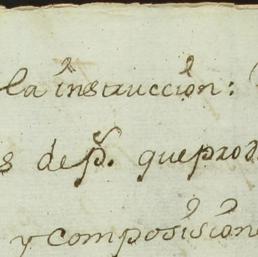 la instruccion:
s de p. que prod
y composicion